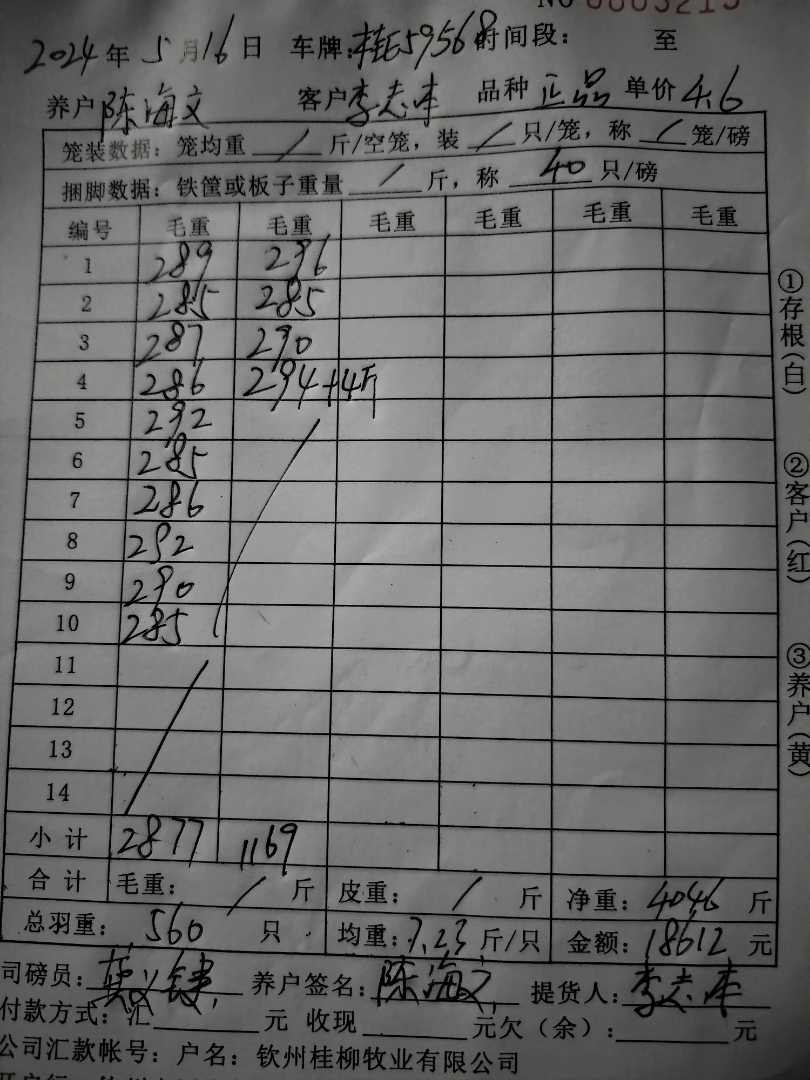 NO 0003215
2024年5月16日 车牌:桂E59568时间段: 至
养户陈海文 客户李志本 品种正品 单价4.6
笼装数据: 笼均重/斤/空笼, 装/只/笼, 称/笼/磅
捆脚数据: 铁筐或板子重量/斤, 称40只/磅
编号 毛重 毛重 毛重 毛重 毛重 毛重
1 289 296
2 285 285
3 287 290
4 286 294+4斤
5 292
6 285
7 286
8 292
9 290
10 285
11
12
13
14
小计 2877 1169
合计 毛重: / 斤 皮重: / 斤 净重: 4046 斤
总羽重: 560 只 均重: 7.23 斤/只 金额: 18612 元
司磅员: 养户签名: 陈海文 提货人: 李志本
付款方式: 汇 元 收现 元欠(余): 元
公司汇款帐号: 户名: 钦州桂柳牧业有限公司
①存根(白)
②客户(红)
③养户(黄)